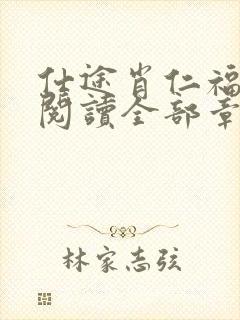 仕途肖仁福
閱讀全部章
林家志弦